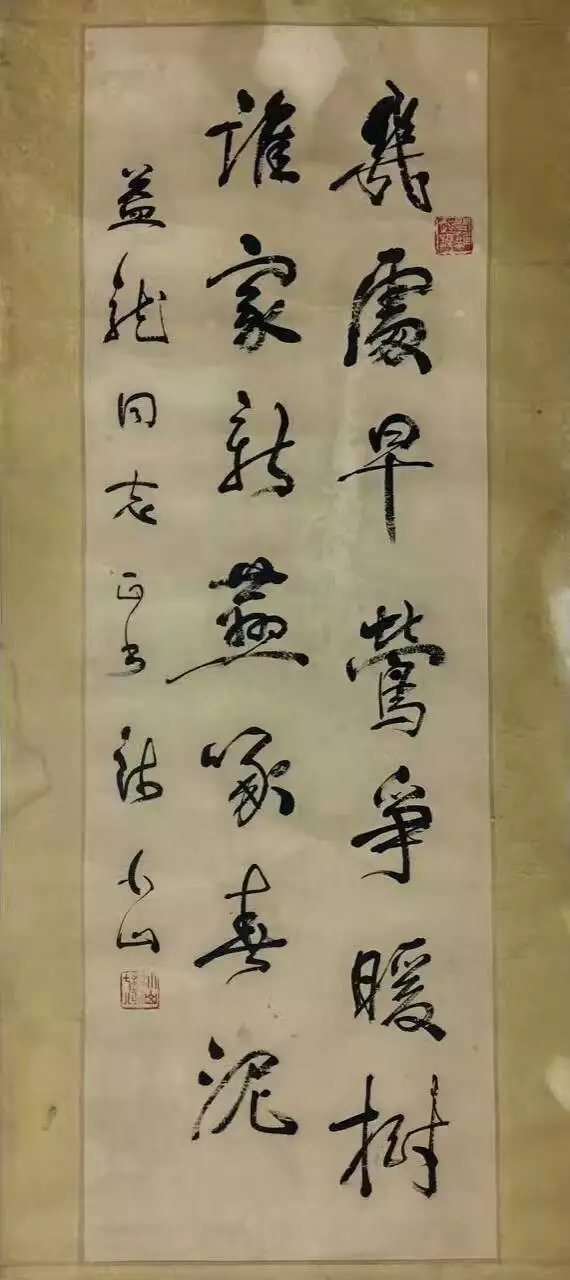 幾處早鶯爭暖樹
誰家新燕啄春泥
益龍同志正 錢小山